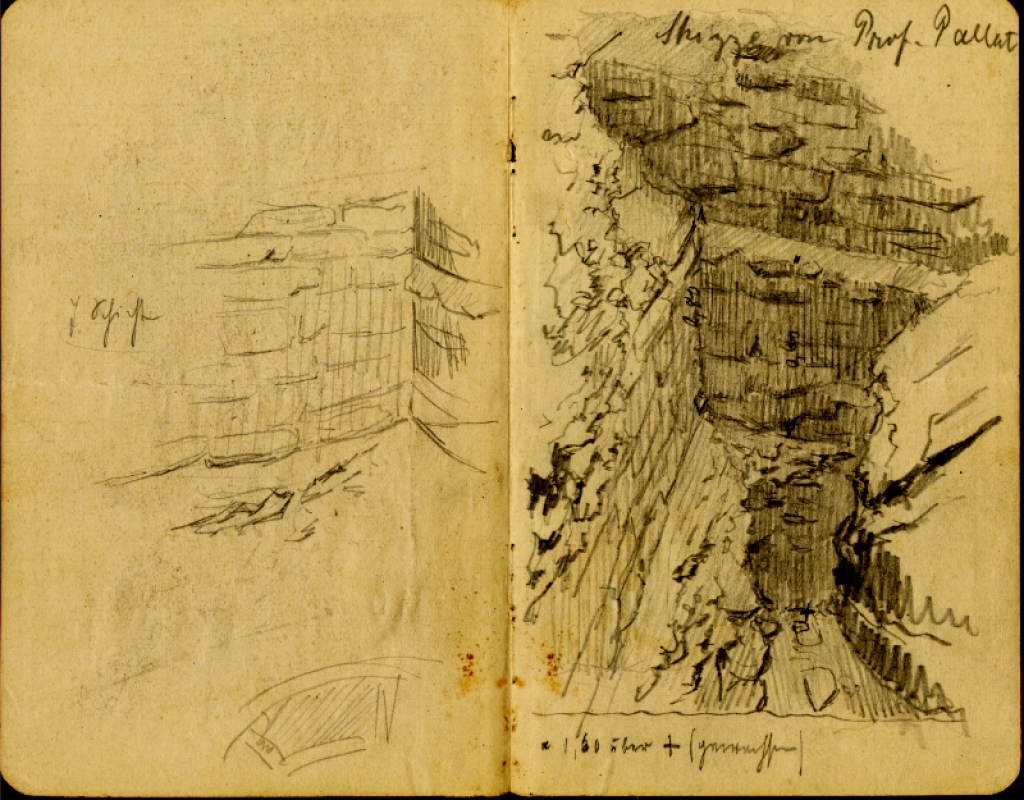 Schicht
Skizze von Prof. Pallat
1,60 über + (gewachsen)